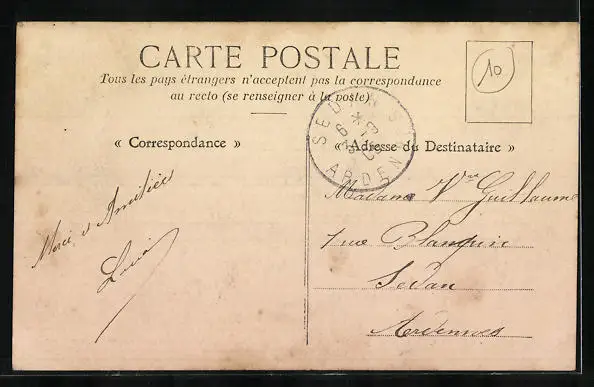 CARTE POSTALE
Tous les pays étrangers n'acceptent pas la correspondance
au recto (se renseigner à la poste)
10
SEDAN
ARDENNES
« Correspondance »
« Adresse du Destinataire »
Merci & Amitiés
Madame Vve Guillaume
rue Blanpain
Sedan
Ardennes